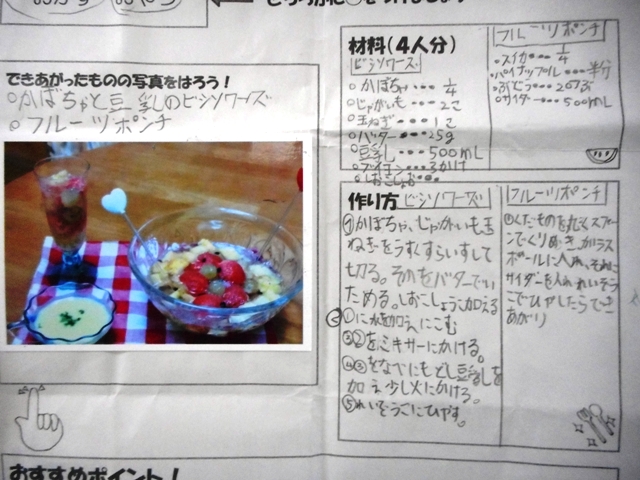 できあがったものの写真をはろう！
○かぼちゃと豆乳のビシソワーズ
○フルーツポンチ
材料(4人分)
ビシソワーズ
・かぼちゃ・・・1/4
・じゃがいも・・・2こ
・玉ねぎ・・・1こ
・バター・・・25g
・豆乳・・・500mL
・しおこしょう・・・
フルーツポンチ
・スイカ・・・1/4
・パイナップル・・・半分
・ぶどう・・・20つぶ
・サイダー・・・500mL
作り方
ビシソワーズ
①かぼちゃ、じゃがいも玉
ねぎをうすくすらいすして
切る。それをバターでい
ためる。しおこしょうこ加える
②①に水を加えにこむ
③②をミキサーにかける。
④③をなべにもどし豆乳を
加え少し火にかける。
⑤れいぞうこにひやす。
フルーツポンチ
①くだものを丸くスプー
ンでくりぬきガラス
ボールに入れ、それに
サイダーを入れれいぞう
こでひやしたらでき
あがり
おすすめポイント！